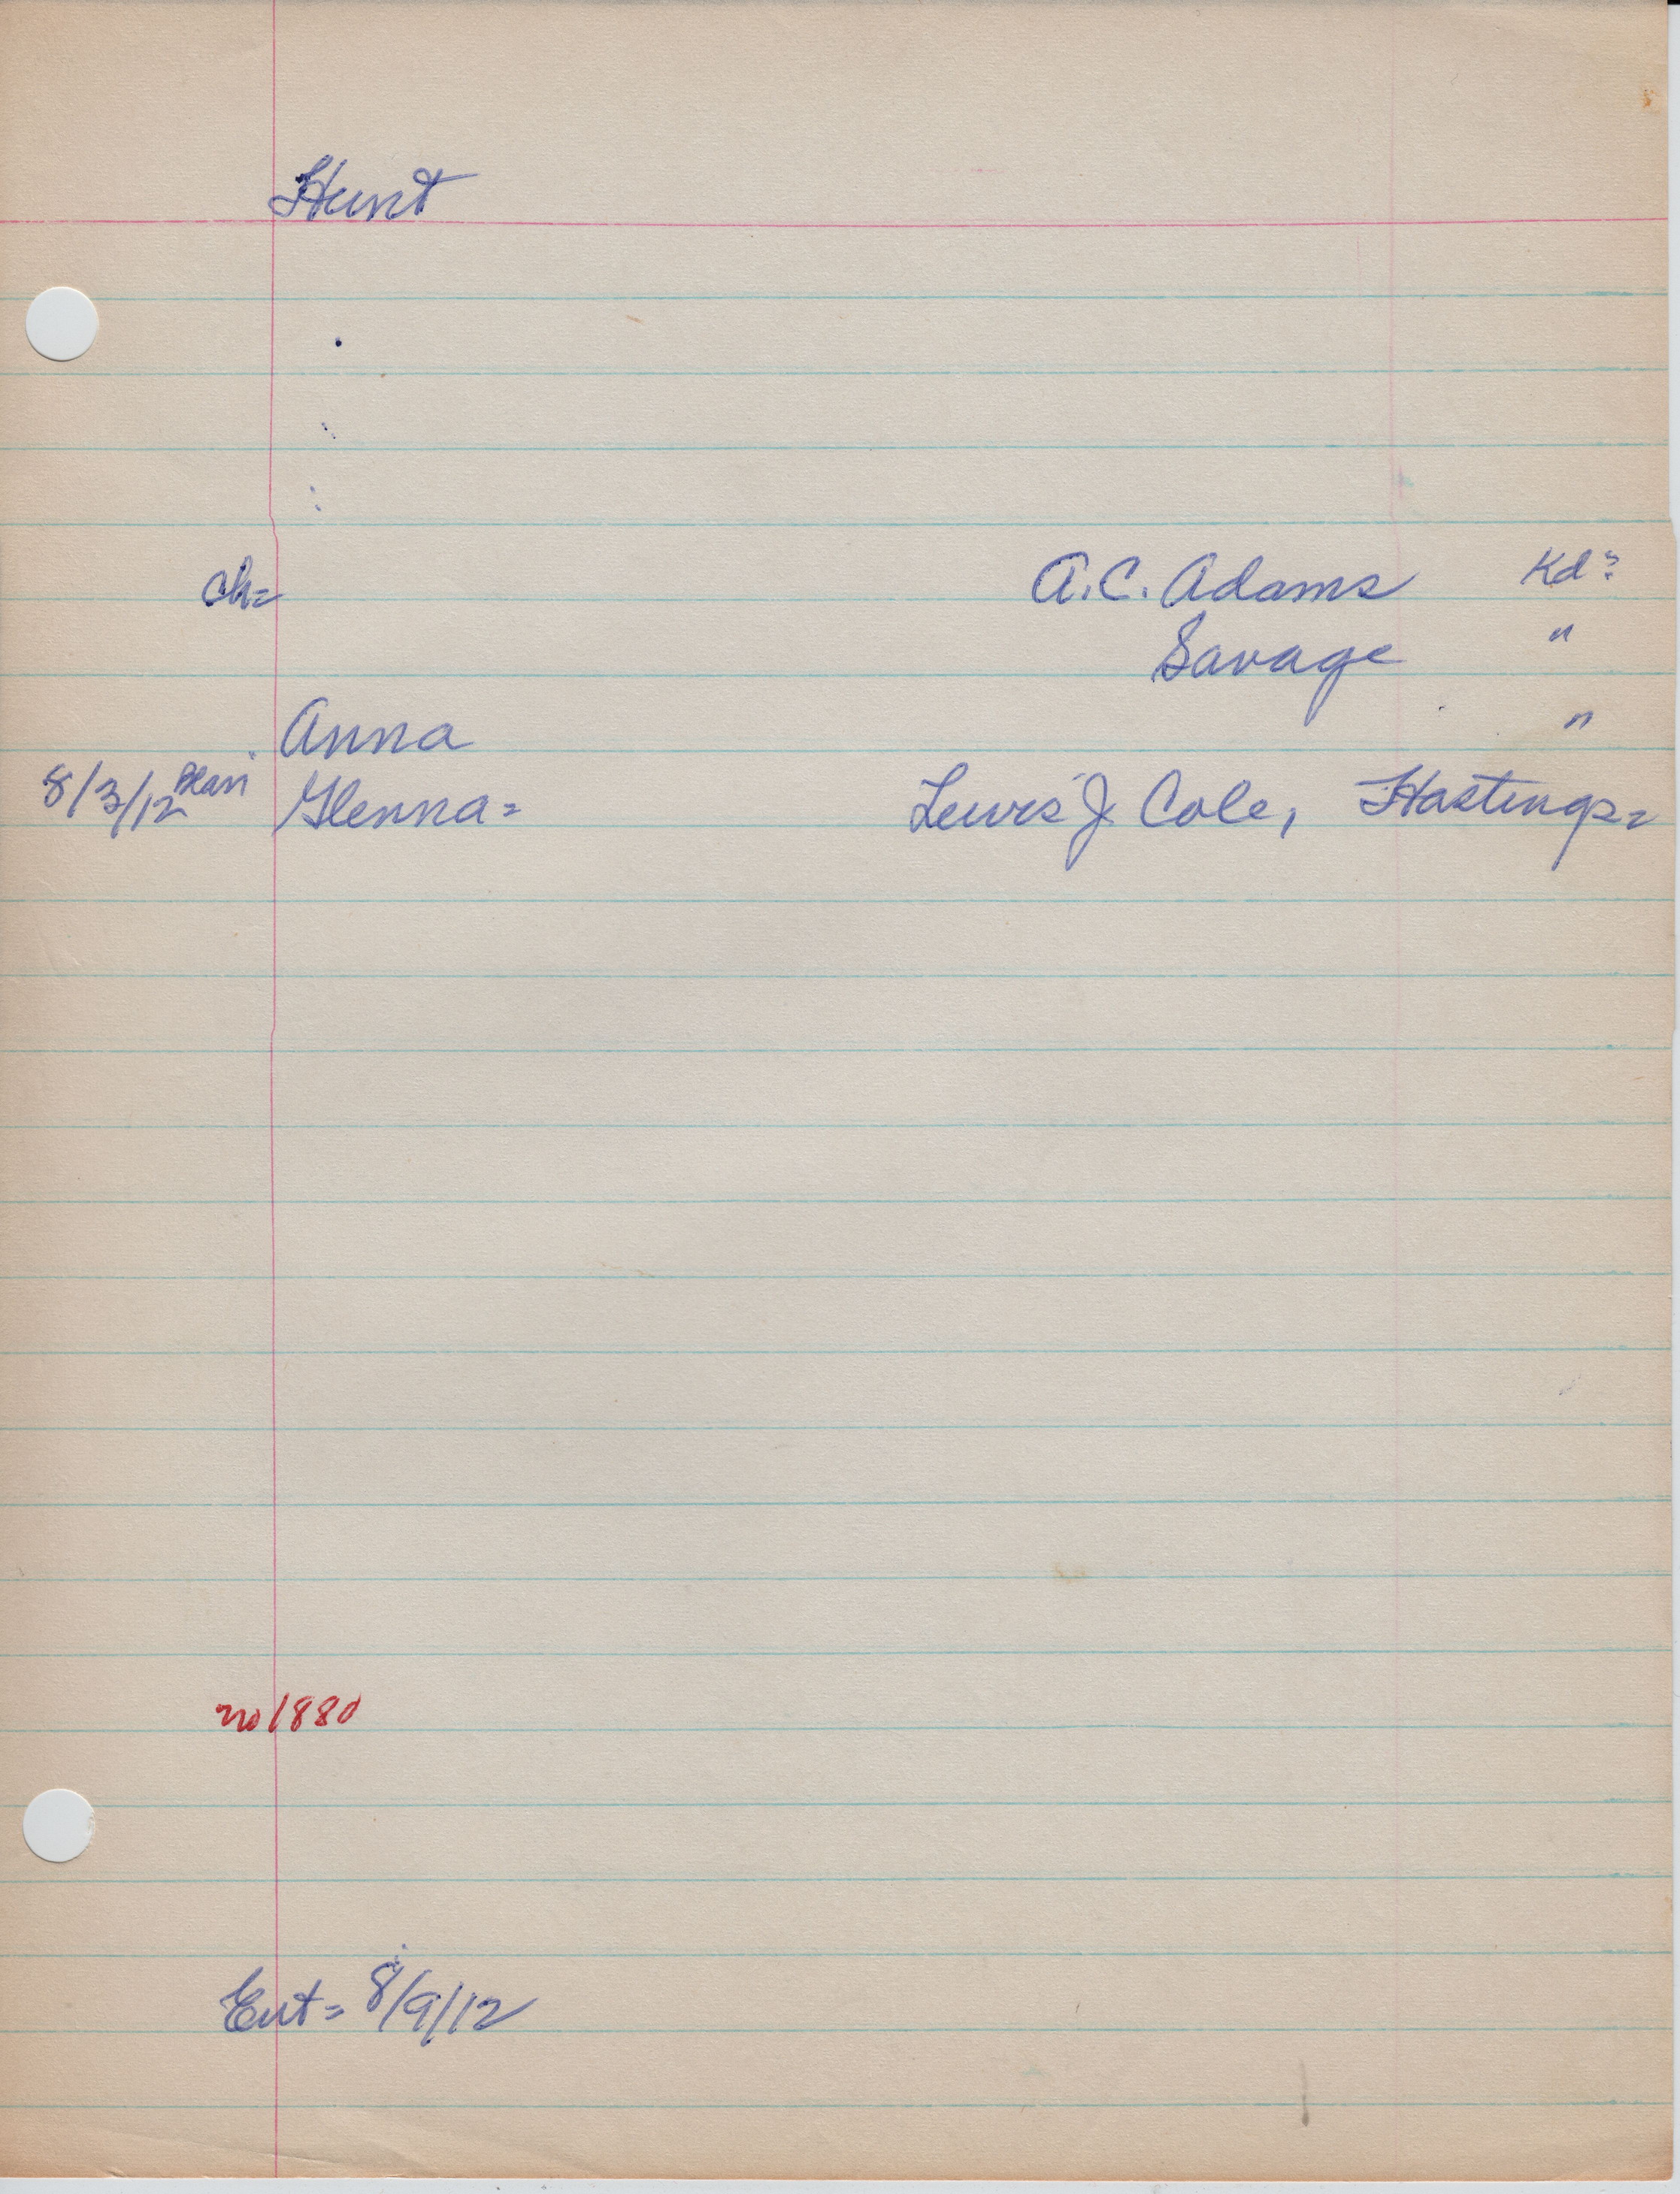 Hunt
ch= A.C. Adams Kd?
Savage "
Anna "
8/3/12 Glenna= Lewis J Cole, Hastings=
no 1880
Ent= 8/9/12